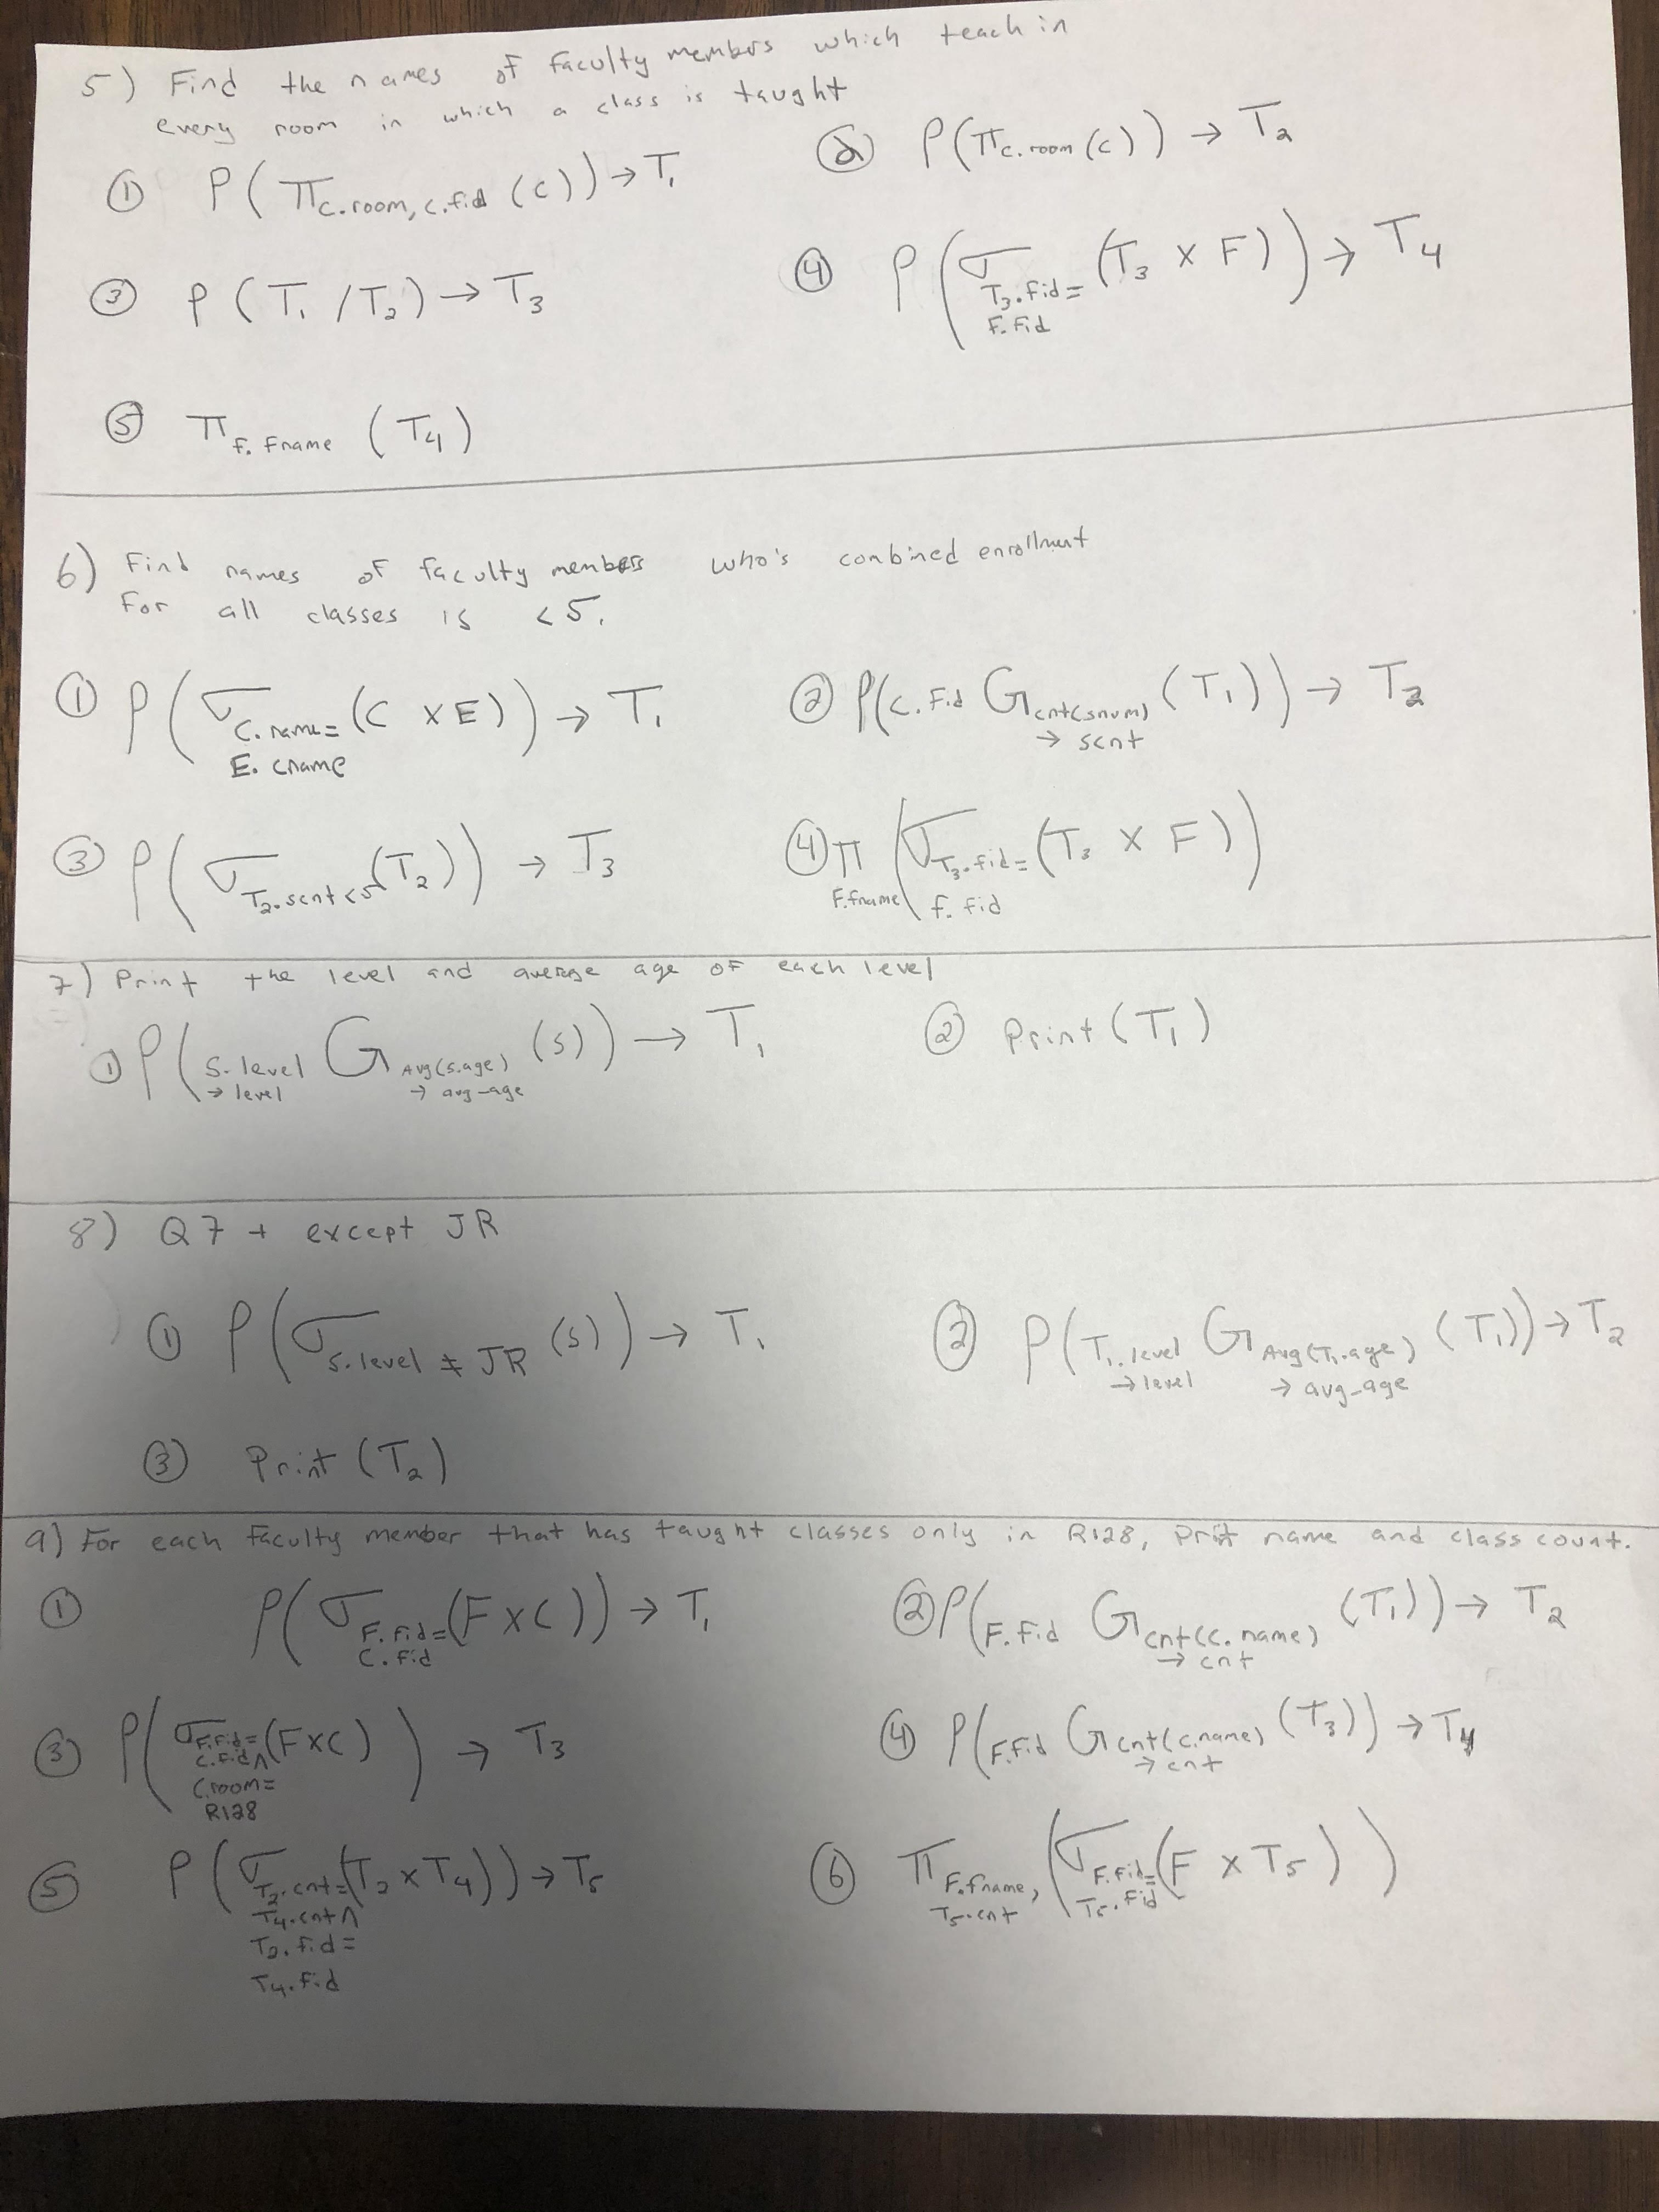 5) Find the names of faculty members which teach in
every room in which a class is taught
① ρ(π C.room, C.fid (C)) → T₁
② ρ(π C.room (C)) → T₂
③ ρ(T₁ / T₂) → T₃
④ ρ(σ T₃.fid = F.fid (T₃ × F)) → T₄
⑤ π F.Fname (T₄)
6) Find names of faculty members who's combined enrollment
for all classes is <5.
① ρ(σ C.name = E.cname (C × E)) → T₁
② ρ(C.Fid G cnt(snum) → scnt (T₁)) → T₂
③ ρ(σ T₂.scnt<5 (T₂)) → T₃
④ π F.fname (σ T₃.fid = f.fid (T₃ × F))
7) Print the level and average age of each level
① ρ(S.level → level G Avg(S.age) → avg-age (S)) → T₁
② Print (T₁)
8) Q7 + except JR
① ρ(σ S.level ≠ JR (S)) → T₁
② ρ(T₁.level → level G Avg(T₁.age) → avg-age (T₁)) → T₂
③ Print (T₂)
9) For each faculty member that has taught classes only in R128, prit name and class count.
① ρ(σ F.fid = C.fid (F × C)) → T₁
② ρ(F.fid G cnt(C.name) → cnt (T₁)) → T₂
③ ρ(σ F.Fid = C.Fid ∧ C.room = R128 (F × C)) → T₃
④ ρ(F.fid G cnt(C.name) → cnt (T₃)) → T₄
⑤ ρ(σ T₂.cnt = T₄.cnt ∧ T₂.fid = T₄.fid (T₂ × T₄)) → T₅
⑥ π F.fname, T₅.cnt (σ F.fid = T₅.fid (F × T₅))